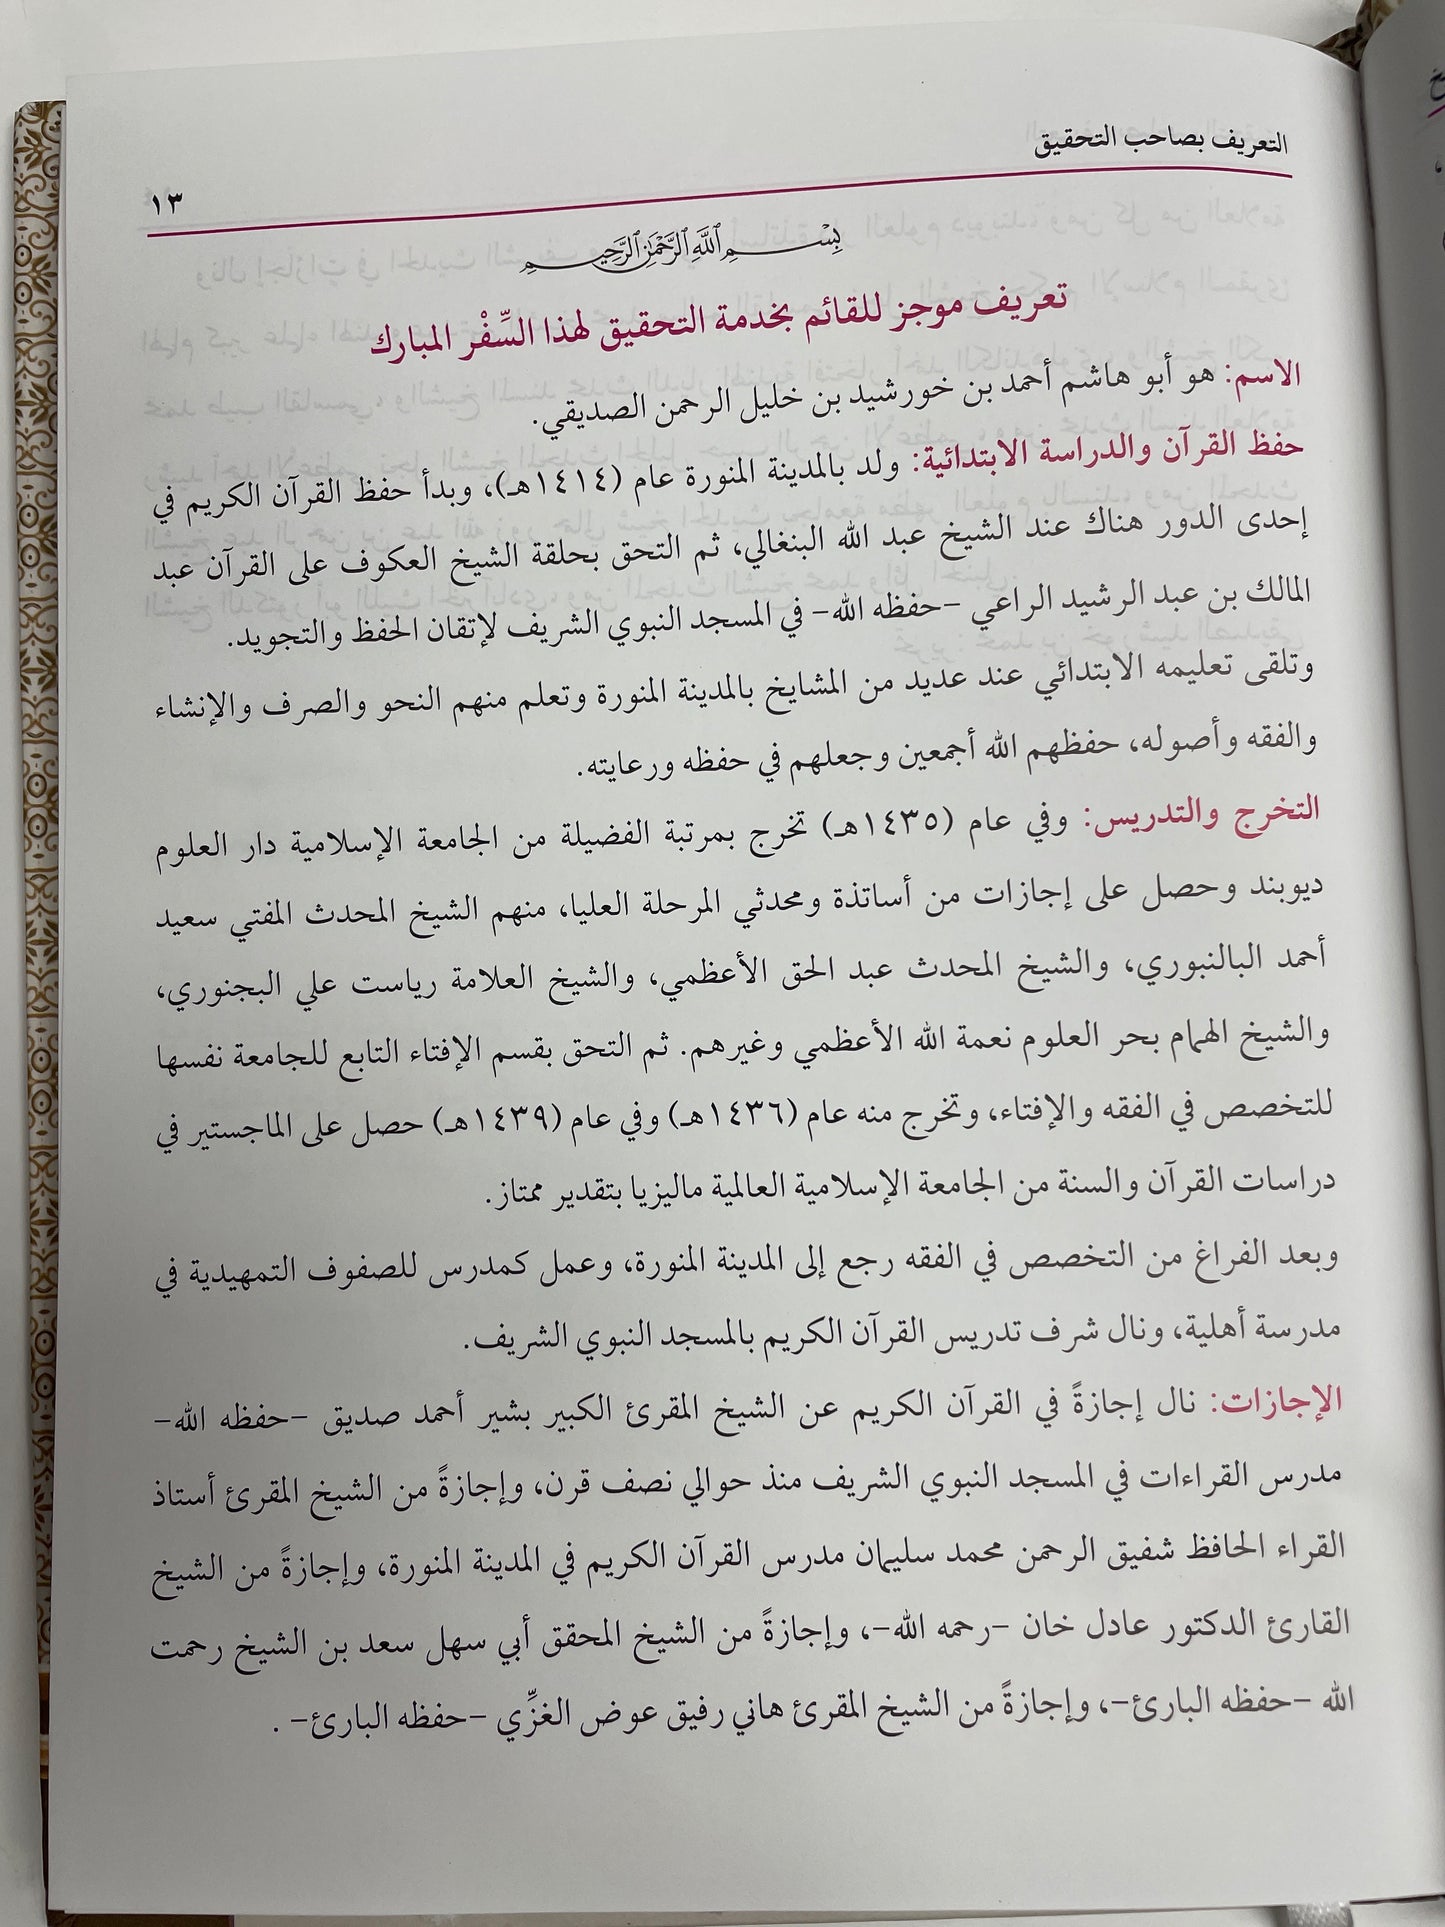 التعريف بصاحب التحقيق
١٣
بِسْمِ اللَّهِ الرَّحْمَٰنِ الرَّحِيمِ
تعريف موجز للقائم بخدمة التحقيق لهذا السِّفْر المبارك
الاسم: هو أبو هاشم أحمد بن خورشيد بن خليل الرحمن الصديقي.
حفظ القرآن والدراسة الابتدائية: ولد بالمدينة المنورة عام (١٤١٤هـ)، وبدأ حفظ القرآن الكريم في
إحدى الدور هناك عند الشيخ عبد الله البنغالي، ثم التحق بحلقة الشيخ العكوف على القرآن عبد
المالك بن عبد الرشيد الراعي –حفظه الله– في المسجد النبوي الشريف لإتقان الحفظ والتجويد.
وتلقى تعليمه الابتدائي عند عديد من المشايخ بالمدينة المنورة وتعلم منهم النحو والصرف والإنشاء
والفقه وأصوله، حفظهم الله أجمعين وجعلهم في حفظه ورعايته.
التخرج والتدريس: وفي عام (١٤٣٥هـ) تخرج بمرتبة الفضيلة من الجامعة الإسلامية دار العلوم
ديوبند وحصل على إجازات من أساتذة ومحدثي المرحلة العليا، منهم الشيخ المحدث المفتي سعيد
أحمد البالنبوري، والشيخ المحدث عبد الحق الأعظمي، والشيخ العلامة رياست علي البجنوري،
والشيخ الهمام بحر العلوم نعمة الله الأعظمي وغيرهم. ثم التحق بقسم الإفتاء التابع للجامعة نفسها
للتخصص في الفقه والإفتاء، وتخرج منه عام (١٤٣٦هـ) وفي عام (١٤٣٩هـ) حصل على الماجستير في
دراسات القرآن والسنة من الجامعة الإسلامية العالمية ماليزيا بتقدير ممتاز.
وبعد الفراغ من التخصص في الفقه رجع إلى المدينة المنورة، وعمل كمدرس للصفوف التمهيدية في
مدرسة أهلية، ونال شرف تدريس القرآن الكريم بالمسجد النبوي الشريف.
الإجازات: نال إجازةً في القرآن الكريم عن الشيخ المقرئ الكبير بشير أحمد صديق –حفظه الله–
مدرس القراءات في المسجد النبوي الشريف منذ حوالي نصف قرن، وإجازةً من الشيخ المقرئ أستاذ
القراء الحافظ شفيق الرحمن محمد سليمان مدرس القرآن الكريم في المدينة المنورة، وإجازةً من الشيخ
القارئ الدكتور عادل خان –رحمه الله–، وإجازةً من الشيخ المحقق أبي سهل سعد بن الشيخ رحمت
الله –حفظه البارئ–، وإجازةً من الشيخ المقرئ هاني رفيق عوض الغزِّي –حفظه البارئ– .